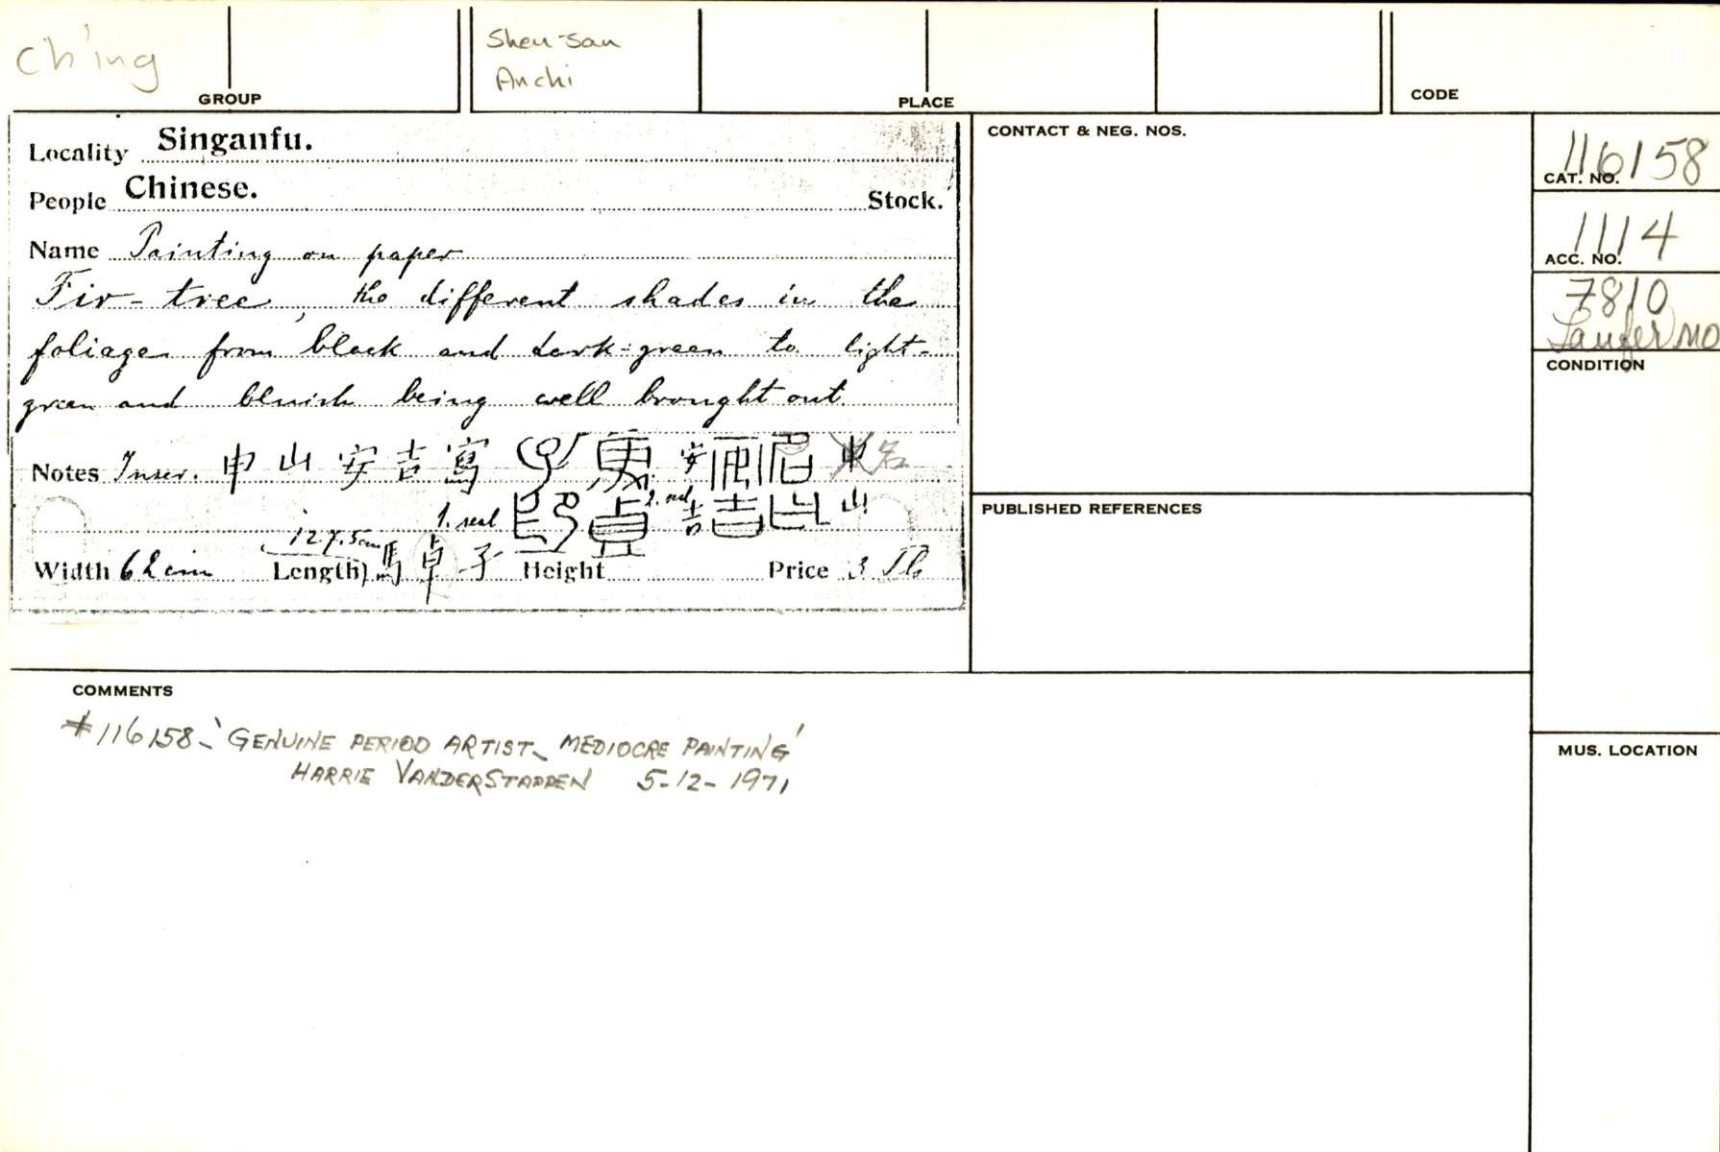 Ch'ing
GROUP
Shen-san
Anchi
PLACE
CODE
Locality Singanfu.
People Chinese. Stock.
Name Painting on paper
Fir-tree, the different shades in the
foliage from black and dark-green to light-
green and bluish being well brought out.
Notes Inscr. 申山安吉寫 安 申 名
1. seal 2. seal 吉 山
127.5cm
Width 62 cm Length) 馬卓子 Height Price 3
CONTACT & NEG. NOS.
PUBLISHED REFERENCES
116158
CAT. NO.
1114
ACC. NO.
7810
Laufer no
CONDITION
MUS. LOCATION
COMMENTS
#116158-'GENUINE PERIOD ARTIST - MEDIOCRE PAINTING'
HARRIE VANDERSTAPPEN 5-12-1971